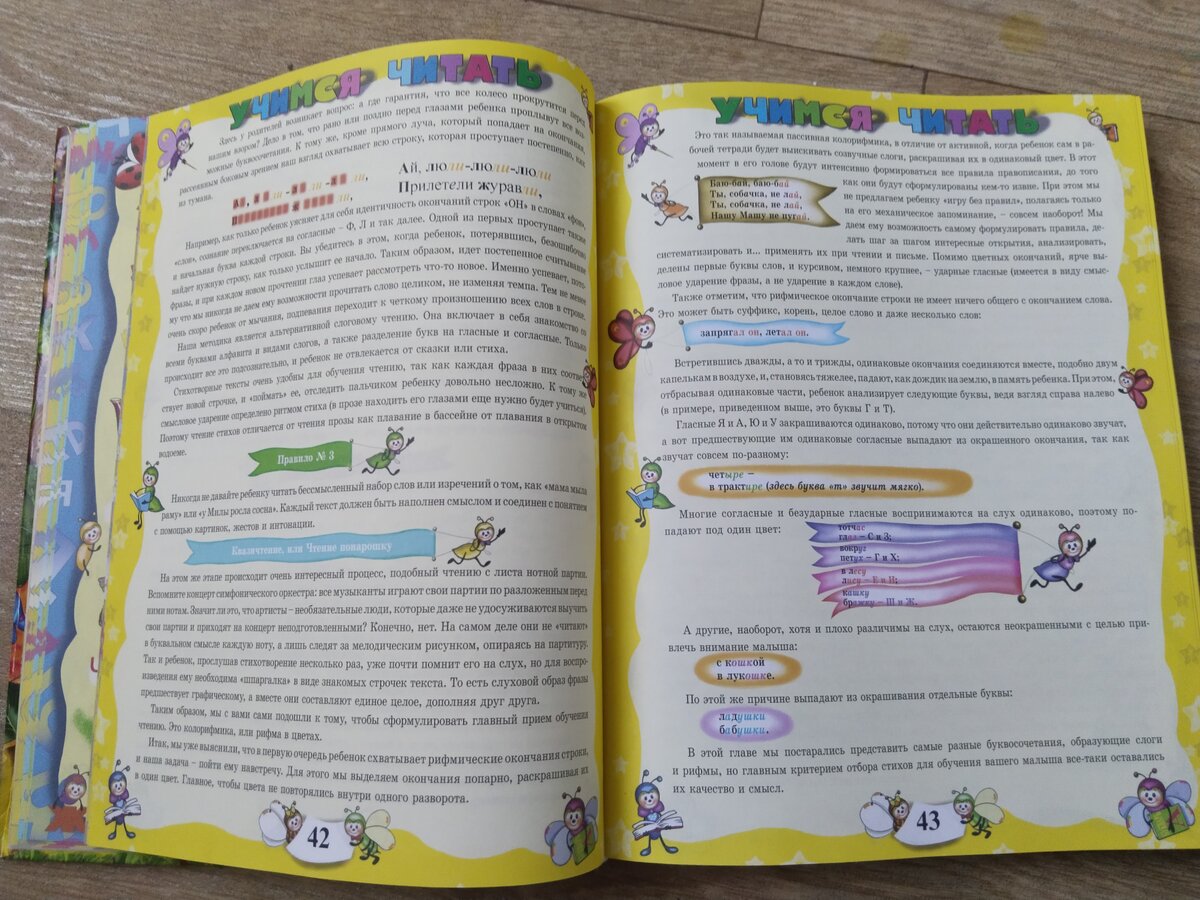 УЧИМСЯ ЧИТАТЬ
Здесь у родителей возникает вопрос: а где гарантия, что все колесо прокрутится перед
вашим взором? Дело в том, что рано или поздно перед глазами ребенка проплывут все воз-
можные буквосочетания. К тому же, кроме прямого луча, который попадает на окончания,
рассеянным боковым зрением ваш взгляд охватывает всю строку, которая проступает постепенно, как
из тумана.
Ай, люли-люли-люли
Прилетели журавли,
Например, как только ребенок уясняет для себя идентичность окончаний строк «ОН» в словах «фон»,
«слон», сознание переключается на согласные – Ф, Л и так далее. Одной из первых проступает также
и начальная буква каждой строки. Вы убедитесь в этом, когда ребенок, потерявшись, безошибочно
найдет нужную строку, как только услышит ее начало. Таким образом, идет постепенное считывание
фразы, и при каждом новом прочтении глаз успевает рассмотреть что-то новое. Именно успевает, пото-
му что мы никогда не даем ему возможности прочитать слово целиком, не изменяя темпа. Тем не менее
очень скоро ребенок от мычания, подпевания переходит к четкому произношению всех слов в строке.
Наша методика является альтернативной слоговому чтению. Она включает в себя знакомство со
всеми буквами алфавита и видами слогов, а также разделение букв на гласные и согласные. Только
происходит все это подсознательно, и ребенок не отвлекается от сказки или стиха.
Стихотворные тексты очень удобны для обучения чтению, так как каждая фраза в них соответ-
ствует новой строчке, и «поймать» ее, отследить пальчиком ребенку довольно несложно. К тому же
смысловое ударение определено ритмом стиха (в прозе находить его глазами еще нужно будет учиться).
Поэтому чтение стихов отличается от чтения прозы как плавание в бассейне от плавания в открытом
водоеме.
Правило № 3
Никогда не давайте ребенку читать бессмысленный набор слов или изречений о том, как «мама мыла
раму» или «у Милы росла сосна». Каждый текст должен быть наполнен смыслом и соединен с понятием
с помощью картинок, жестов и интонации.
Квазичтение, или Чтение понарошку
На этом же этапе происходит очень интересный процесс, подобный чтению с листа нотной партии.
Вспомните концерт симфонического оркестра: все музыканты играют свои партии по разложенным перед
ними нотам. Значит ли это, что артисты – необязательные люди, которые даже не удосуживаются выучить
свои партии и приходят на концерт неподготовленными? Конечно, нет. На самом деле они не «читают»
в буквальном смысле каждую ноту, а лишь следят за мелодическим рисунком, опираясь на партитуру.
Так и ребенок, прослушав стихотворение несколько раз, уже почти помнит его на слух, но для воспро-
изведения ему необходима «шпаргалка» в виде знакомых строчек текста. То есть слуховой образ фразы
предшествует графическому, а вместе они составляют единое целое, дополняя друг друга.
Таким образом, мы с вами сами подошли к тому, чтобы сформулировать главный прием обучения
чтению. Это колорифмика, или рифма в цветах.
Итак, мы уже выяснили, что в первую очередь ребенок схватывает рифмические окончания строки,
и наша задача – пойти ему навстречу. Для этого мы выделяем окончания попарно, раскрашивая их
в один цвет. Главное, чтобы цвета не повторялись внутри одного разворота.
42
УЧИМСЯ ЧИТАТЬ
Это так называемая пассивная колорифмика, в отличие от активной, когда ребенок сам в ра-
бочей тетради будет выискивать созвучные слоги, раскрашивая их в одинаковый цвет. В этот
момент в его голове будут интенсивно формироваться все правила правописания, до того
Баю-бай, баю-бай
Ты, собачка, не лай,
Ты, собачка, не лай,
Нашу Машу не пугай.
как они будут сформулированы кем-то извне. При этом мы
не предлагаем ребенку «игру без правил», полагаясь только
на его механическое запоминание, – совсем наоборот! Мы
даем ему возможность самому формулировать правила, де-
лать шаг за шагом интересные открытия, анализировать,
систематизировать и... применять их при чтении и письме. Помимо цветных окончаний, ярче вы-
делены первые буквы слов, и курсивом, немного крупнее, – ударные гласные (имеется в виду смыс-
ловое ударение фразы, а не ударение в каждом слове).
Также отметим, что рифмическое окончание строки не имеет ничего общего с окончанием слова.
Это может быть суффикс, корень, целое слово и даже несколько слов:
запрягал он, летал он.
Встретившись дважды, а то и трижды, одинаковые окончания соединяются вместе, подобно двум
капелькам в воздухе, и, становясь тяжелее, падают, как дождик на землю, в память ребенка. При этом,
отбрасывая одинаковые части, ребенок анализирует следующие буквы, ведя взгляд справа налево
(в примере, приведенном выше, это буквы Г и Т).
Гласные Я и А, Ю и У закрашиваются одинаково, потому что они действительно одинаково звучат,
а вот предшествующие им одинаковые согласные выпадают из окрашенного окончания, так как
звучат совсем по-разному:
четыре –
в трактире (здесь буква «т» звучит мягко).
Многие согласные и безударные гласные воспринимаются на слух одинаково, поэтому по-
падают под один цвет:
тотчас
глаз – С и З;
вокруг
петух – Г и Х;
в лесу
лису – Е и И;
кашку
бражку – Ш и Ж.
А другие, наоборот, хотя и плохо различимы на слух, остаются неокрашенными с целью при-
влечь внимание малыша:
с кошкой
в лукошке.
По этой же причине выпадают из окрашивания отдельные буквы:
ладушки
бабушки.
В этой главе мы постарались представить самые разные буквосочетания, образующие слоги
и рифмы, но главным критерием отбора стихов для обучения вашего малыша все-таки оставались
их качество и смысл.
43